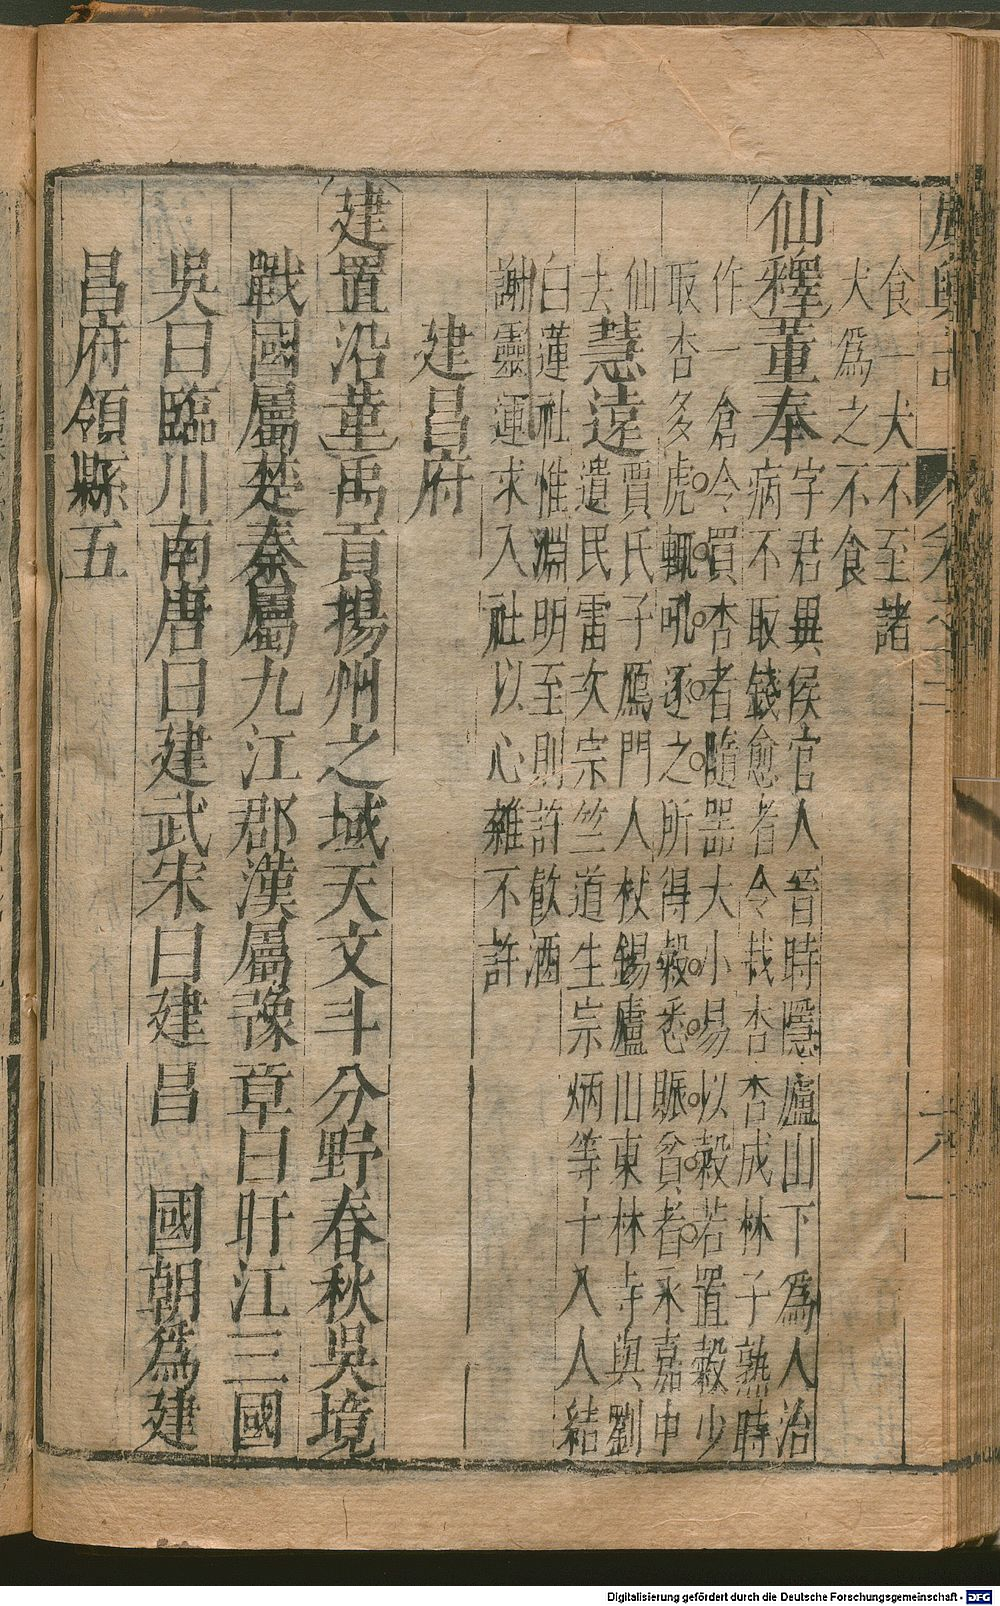 廣輿記
卷之十二
十六
食一犬不至諸
犬爲之不食
仙釋董奉
字君異侯官人晉時隱廬山下爲人治
病不取錢愈者令栽杏杏成林子熟時
作一倉令買杏者隨器大小易以穀若置穀少
取杏多虎輒吼逐之所得穀悉賑貧者永嘉中
仙
去
慧遠
賈氏子鴈門人杖錫廬山東林寺與劉
遺民雷次宗竺道生宗炳等十八人結
白蓮社惟淵明至則許飲酒
謝靈運求入社以心雜不許
建昌府
建置沿革禹貢揚州之域天文斗分野春秋吳境
戰國屬楚秦屬九江郡漢屬豫章曰旴江三國
吳曰臨川南唐曰建武宋曰建昌　國朝爲建
昌府領縣五
Digitalisierung gefördert durch die Deutsche Forschungsgemeinschaft - DFG